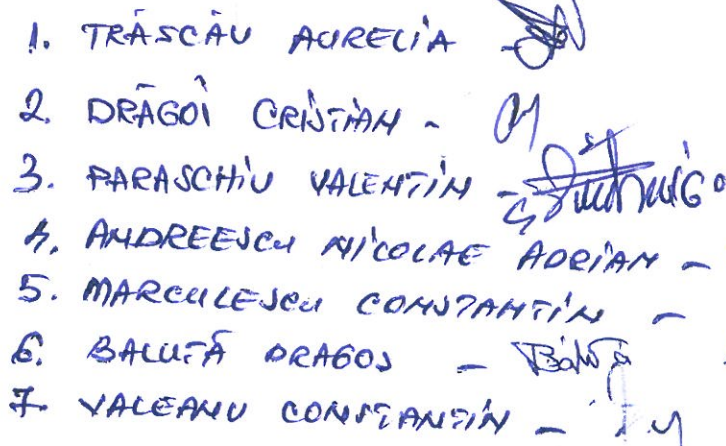 1. TRĂSCĂU AURELIA -
2. DRĂGOI CRISTIAN -
3. PARASCHIV VALENTIN -
4. ANDREESCU NICOLAE ADRIAN -
5. MARCULESCU CONSTANTIN -
6. BALUTĂ DRAGOS -
7. VALEANU CONSTANTIN -